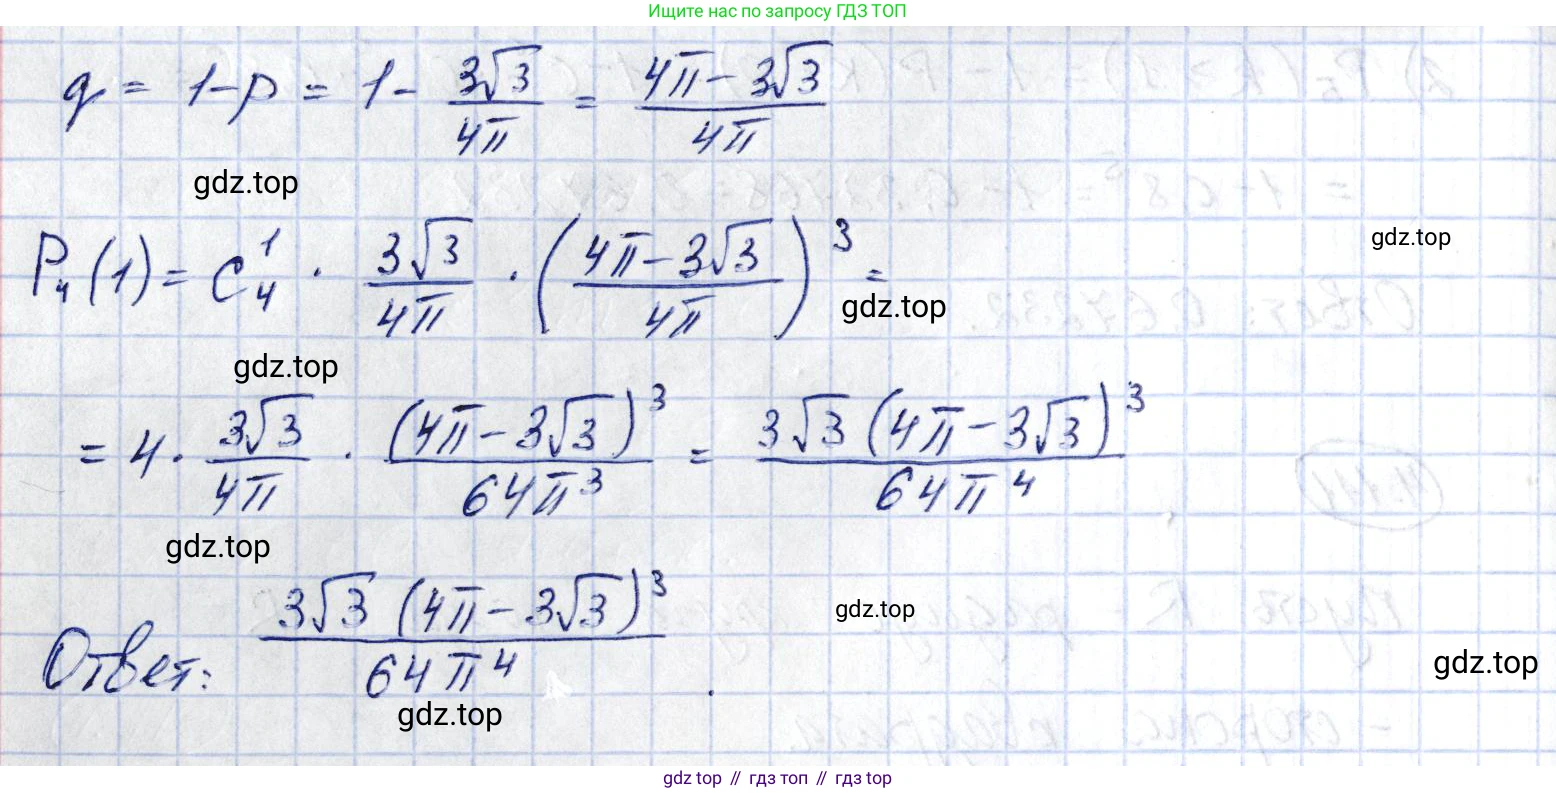 Ищите нас по запросу ГДЗ ТОП
q = 1-p = 1 - 3√3/4π = (4π-3√3)/4π
gdz.top
P₄(1) = C₄¹ · 3√3/4π · ((4π-3√3)/4π)³ =
gdz.top
gdz.top
gdz.top
= 4 · 3√3/4π · (4π-3√3)³/64π³ = 3√3(4π-3√3)³/64π⁴
gdz.top
Ответ: 3√3(4π-3√3)³/64π⁴.
gdz.top
gdz.top
gdz.top
gdz.top // гдз топ // гдз top